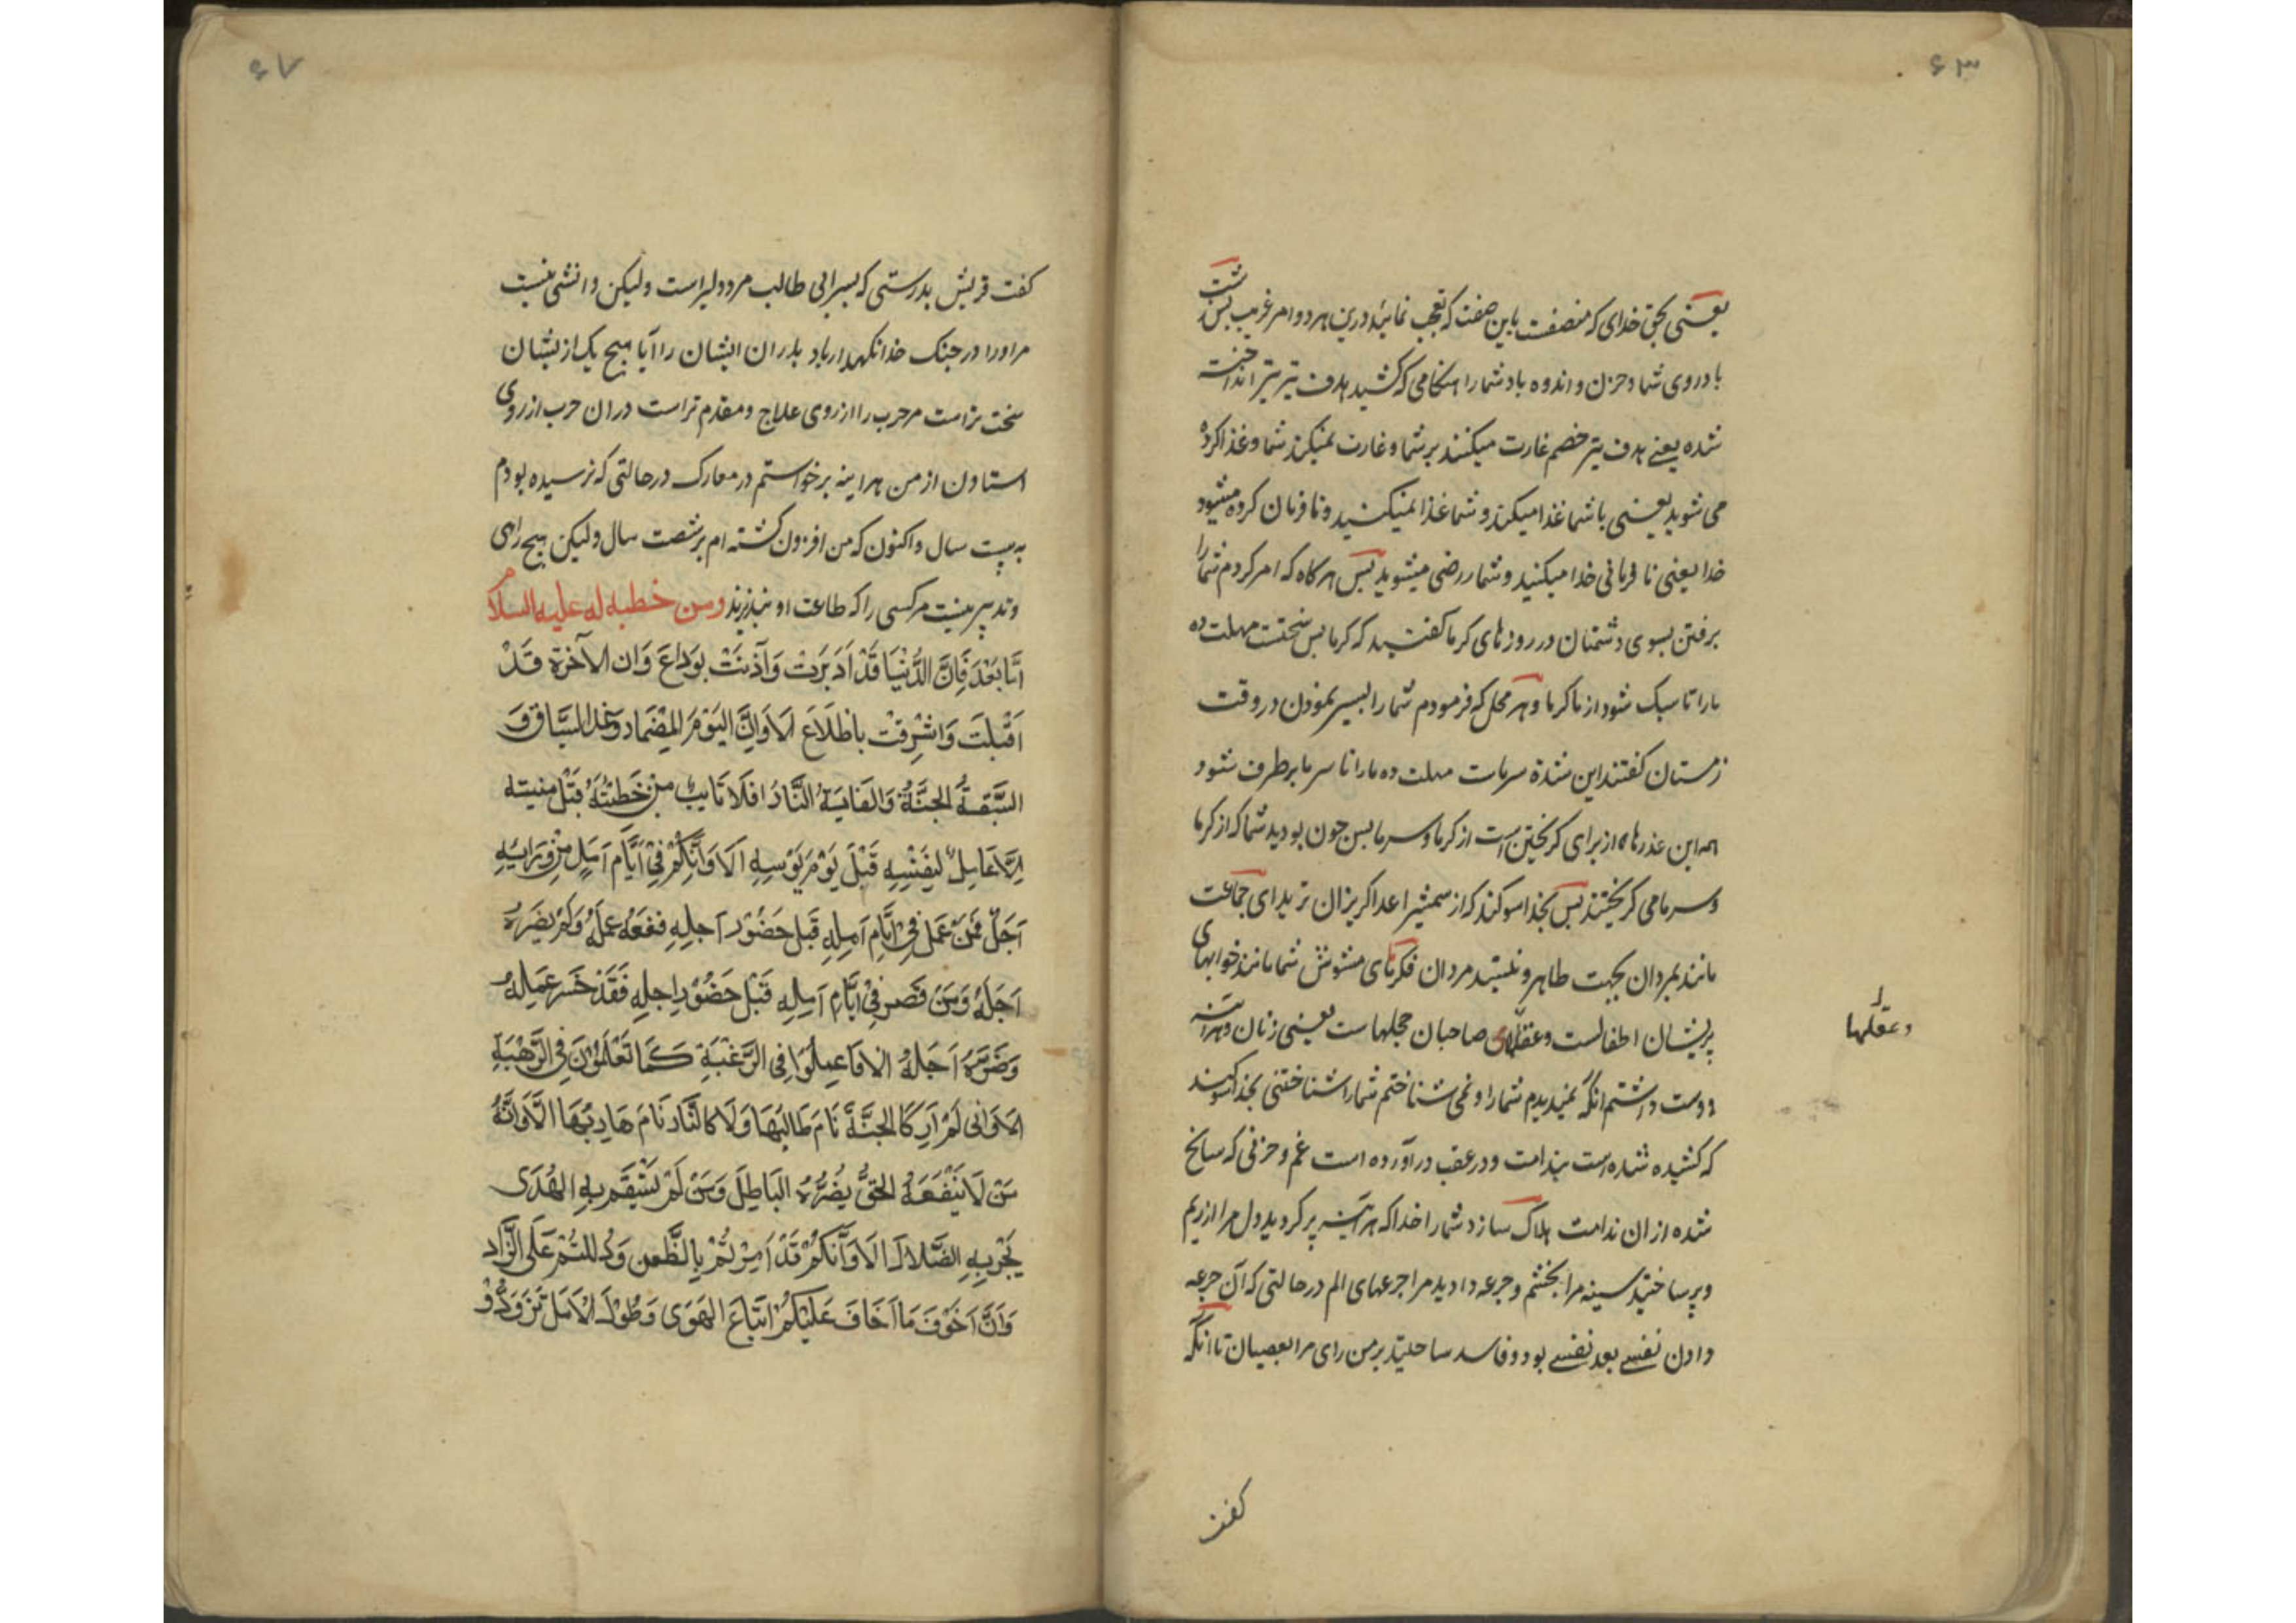 ۶۳
یعنی بحق خدای که متصفست باین صفت که تعجب نمائید درین هر دو امر غریب پس زشت
باد روی شما و حزن و اندوه باد شما را هنکامی که کشتید هدف تیر تیر انداخته
شده یعنی هدف تیر خصم غارت میکنند بر شما و غارت نمیکند شما و غذا کرده
می شوید یعنی با شما غذا میکند و شما غذا نمیکنید و نا فرمان کرده میشود
خدا یعنی نا فرمانی خدا میکنید و شما رضی میشوید پس هر کاه که امر کردم شما را
برفتن بسوی دشمنان در روزهای کرما کفتید که کرما بس سختست مهلت ده
ما را تا سبک شود از ما کرما و هر محل که فرمودم شما را بسیر نمودن در وقت
زمستان کفتند این شدة سرمات مهلت ده ما را تا سرما بر طرف شود
همه این عذرها از برای کریختن است از کرما و سرما پس چون بودید شما که از کرما
و سرما می کریختند پس بخدا سوکند که از شمشیر اعدا کریزان ترید ای جماعت
مانند بمردان بجهت ظاهر و نیستید مردان فکرتهای مشوش شما مانند خوابهای
پریشان اطفالست و عقلهای صاحبان حجلهاست یعنی زنان و هراینه
و عقلها را
دوست داشتم انکه نمیدیدم شما را و نمی شناختم شما را شناختنی بخدا سوکند
که کشیده شده است بندامت و در عقب در آورده است غم و حزنی که سانح
شده از ان ندامت هلاک سازد شما را خدا که هر آینه پر کردید دل مرا از ریم
و پر ساختید سینه مرا بخشم و جرعه دادید مرا جرعهای الم در حالتی که آن جرعه
دادن نفسی بعد نفسی بود و فاسد ساختید بر من رای مرا بعصیان تا انکه
کفت
۶۷
کفت قریش بدرستی که پسر ابی طالب مرد دلیر است ولیکن دانشی نیست
مر او را در جنک خدا نکهدار باد پدران ایشان را آیا هیچ یک از یشان
سخت تر است مر حرب را از روی علاج و مقدم تر است در ان حرب از روی
استادن از من هراینه برخواستم در معارک در حالتی که نرسیده بودم
به بیست سال و اکنون که من افزون کشته ام بر شصت سال ولیکن هیچ رای
و تدبیر نیست مر کسی را که طاعت او نپذیرند ومن خطبه له علیه السلام
اَمّا بَعْدَ فَاِنَّ الدُّنْیَا قَدْ اَدْبَرَتْ وَآذَنَتْ بِوَدَاعٍ وَان الآخرة قَدْ
اَقْبَلَتْ وَاشْرَفَتْ باطِّلَاعَ اَلَا وَاِنَّ الیَوْمَ المِضْمَار وغدا السِّبَاق وَ
السَّبَقَةُ الجَنَّةُ وَالغَایَةُ النَّارُ افَلَا تَایِبٌ مِنْ خَطیئتِهُ قَبْلَ منیته
اَلَا عَامِلٌ لِنَفْسِهِ قَبْلَ یَوْمِ بَوْسِهِ اَلَا وَاِنَّکُمْ فِیْ اَیَّام اَمَلٍ مِنْ وَرَائِهِ
اَجَلٌ فَمَنْ عَمَلَ فِی اَیَّامِ اَمَلِهِ قَبْلَ حُضُوْرِ اَجلِهِ نفعَهُ عملَهُ وَلَمْ یضرهُ
اَجَلهُ وَمَنْ قَصر فِیْ اَیَّامِ اَمَلِهِ قَبْلَ حُضُوْرِ اجلِهِ فَقَدْ خَسر عَمَلهُ
وَضَرَّهُ اَجَلهُ الا فاعملُوا فِی الرَّغْبَةِ کَمَا تَعْمَلُوْنَ فِی الرَّهْبَةِ
الا وَانی لَمْ اَرَ کَالجَنَّةَ نَامَ طَالِبُهَا وَلَا کالنَّار نَامَ هَارِبُهَا اَلَا وَاِنَّهُ
مَنْ لَا یَنْفَعَهُ الحَقُّ یضُرُّهُ البَاطِل وَمَنْ لَمْ یَسْتَقم بِهِ الهُدَی
یَجْر بِهِ الضَّلال اَلَا وَاَنَّکُمْ قَدْ اُمِرْتُمْ بِالظَّعن وَدُللتُمْ عَلَی الزَّاد
وَاَنَّ اَخْوَفَ مَا اَخَاف عَلَیْکُمْ اتِّبَاعَ الهَوَی وَطُوْل الاَمَل تَزَوَّدُوْ